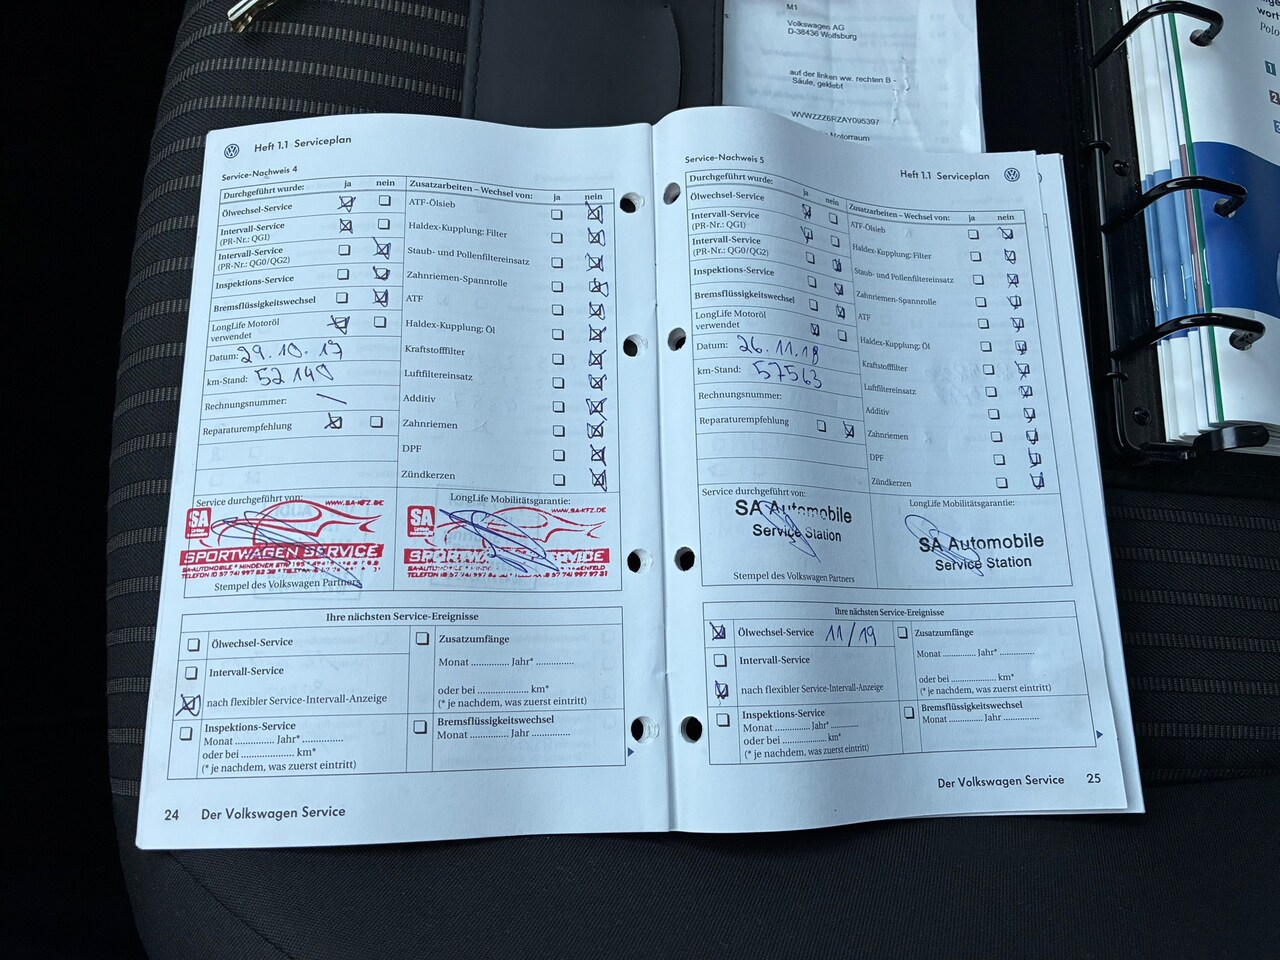 M1
Volkswagen AG
D-38436 Wolfsburg
auf der linken ww. rechten B -
Säule, geklebt
WVWZZZ6RZAY095397
Motorraum
Polo
1
2
Heft 1.1 Serviceplan
Service-Nachweis 4
Durchgeführt wurde: ja nein
Ölwechsel-Service
Intervall-Service
(PR-Nr.: QG1)
Intervall-Service
(PR-Nr.: QG0/QG2)
Inspektions-Service
Bremsflüssigkeitswechsel
LongLife Motoröl
verwendet
Datum: 29.10.17
km-Stand: 52140
Rechnungsnummer: —
Reparaturempfehlung
Zusatzarbeiten – Wechsel von: ja nein
ATF-Ölsieb
Haldex-Kupplung: Filter
Staub- und Pollenfiltereinsatz
Zahnriemen-Spannrolle
ATF
Haldex-Kupplung: Öl
Kraftstofffilter
Luftfiltereinsatz
Additiv
Zahnriemen
DPF
Zündkerzen
Service durchgeführt von:
WWW.SA-KFZ.DE
SA
SPORTWAGEN SERVICE
Stempel des Volkswagen Partners
LongLife Mobilitätsgarantie:
WWW.SA-KFZ.DE
SA
SPORTWAGEN SERVICE
Ihre nächsten Service-Ereignisse
Ölwechsel-Service
Intervall-Service
nach flexibler Service-Intervall-Anzeige
Inspektions-Service
Monat .............. Jahr* ..............
oder bei .................... km*
(* je nachdem, was zuerst eintritt)
Zusatzumfänge
Monat .............. Jahr* ..............
oder bei .................... km*
(* je nachdem, was zuerst eintritt)
Bremsflüssigkeitswechsel
Monat .............. Jahr ..............
24 Der Volkswagen Service
Service-Nachweis 5
Heft 1.1 Serviceplan
Durchgeführt wurde: ja nein
Ölwechsel-Service
Intervall-Service
(PR-Nr.: QG1)
Intervall-Service
(PR-Nr.: QG0/QG2)
Inspektions-Service
Bremsflüssigkeitswechsel
LongLife Motoröl
verwendet
Datum: 26.11.18
km-Stand: 57563
Rechnungsnummer:
Reparaturempfehlung
Zusatzarbeiten – Wechsel von: ja nein
ATF-Ölsieb
Haldex-Kupplung: Filter
Staub- und Pollenfiltereinsatz
Zahnriemen-Spannrolle
ATF
Haldex-Kupplung: Öl
Kraftstofffilter
Luftfiltereinsatz
Additiv
Zahnriemen
DPF
Zündkerzen
Service durchgeführt von:
SA Automobile
Service Station
Stempel des Volkswagen Partners
LongLife Mobilitätsgarantie:
SA Automobile
Service Station
Ihre nächsten Service-Ereignisse
Ölwechsel-Service 11/19
Intervall-Service
nach flexibler Service-Intervall-Anzeige
Inspektions-Service
Monat .............. Jahr* ..............
oder bei .................... km*
(* je nachdem, was zuerst eintritt)
Zusatzumfänge
Monat .............. Jahr* ..............
oder bei .................... km*
(* je nachdem, was zuerst eintritt)
Bremsflüssigkeitswechsel
Monat .............. Jahr ..............
Der Volkswagen Service 25